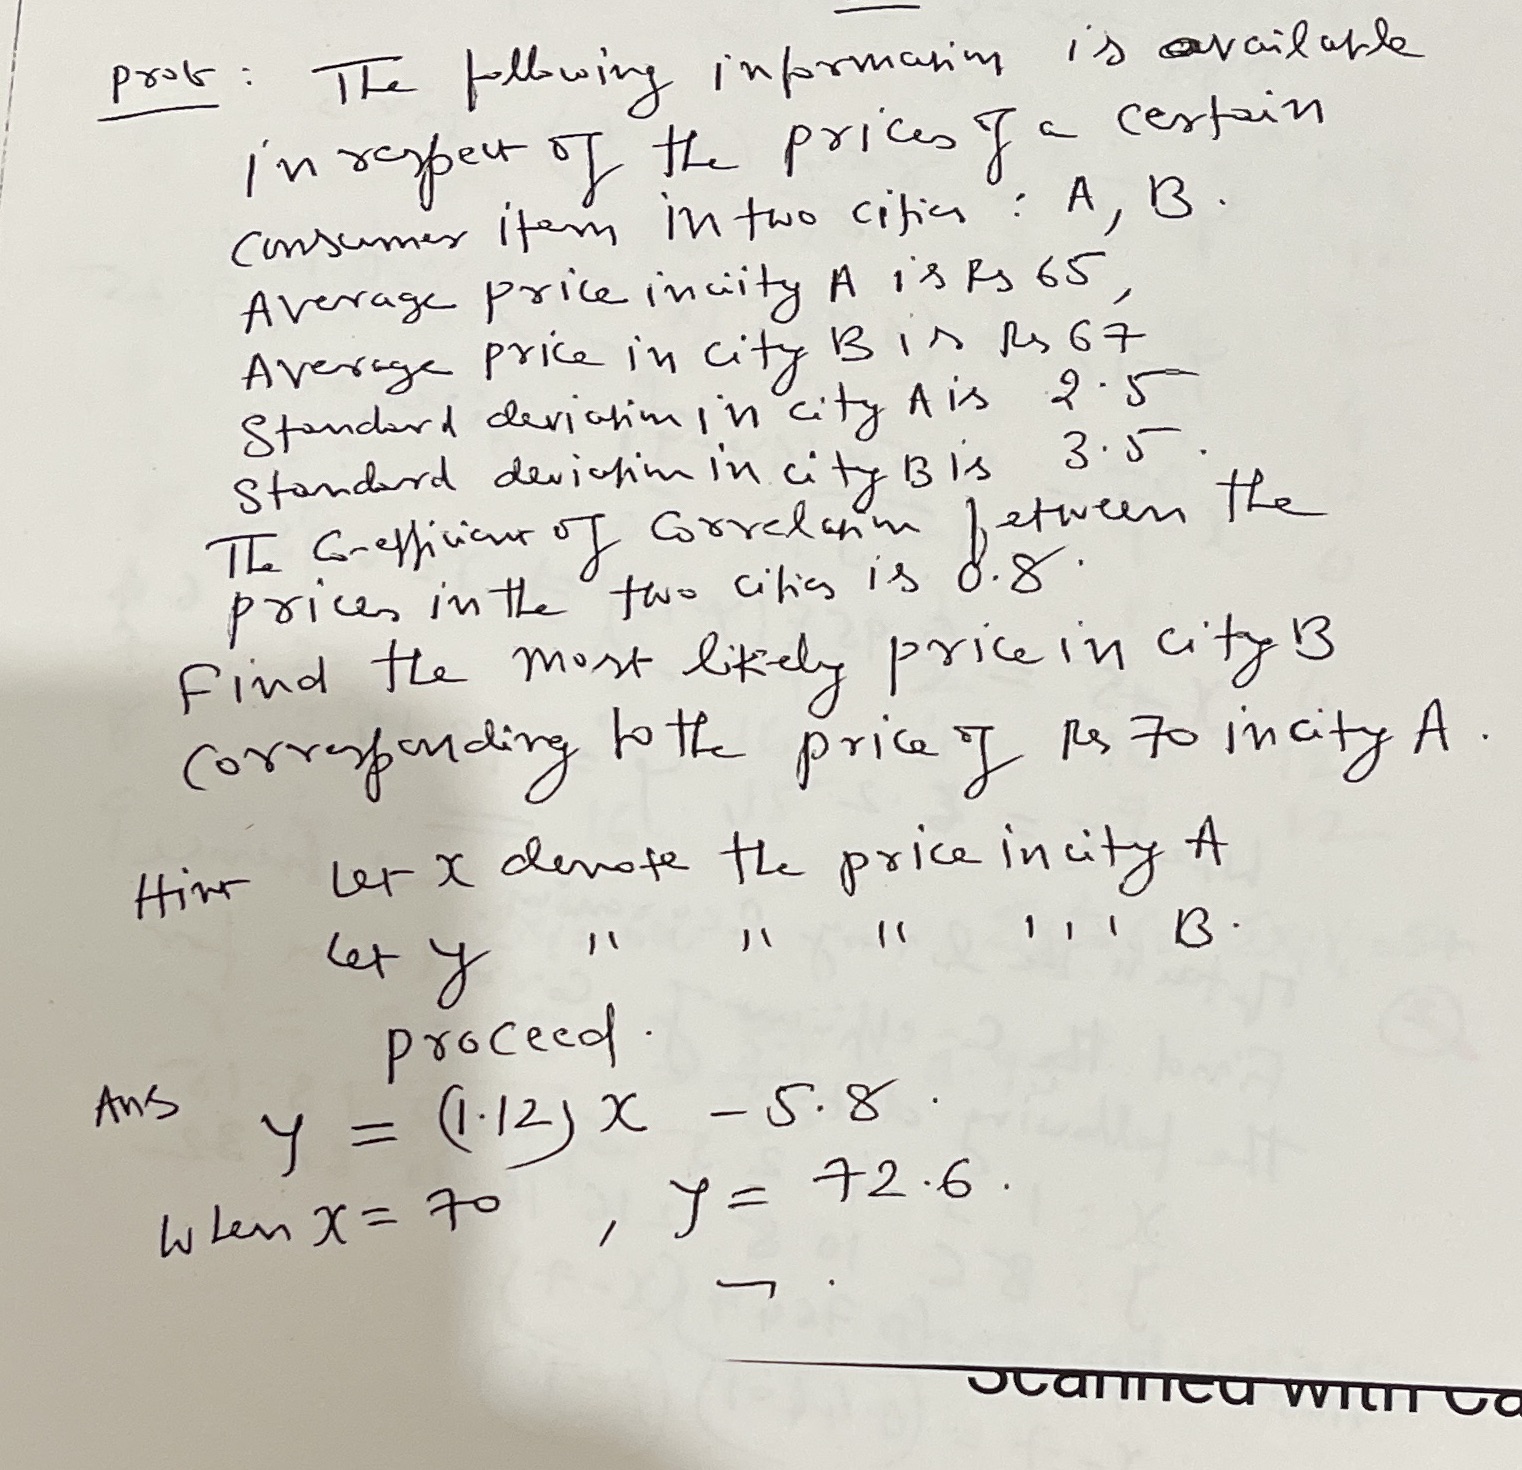 Prob: The following information is available
in respect of the prices of a certain
consumer item in two cities : A, B.
Average price in city A is Rs 65,
Average price in city B is Rs 67
Standard deviation in city A is 2.5
Standard deviation in city B is 3.5.
The Co-efficient of Correlation between the
prices in the two cities is 0.8.
Find the most likely price in city B
corresponding to the price of Rs 70 in city A.
Hint Let x denote the price in city A
Let y " " " " ' B.
proceed.
Ans y = (1.12) x - 5.8.
When x = 70 , y = 72.6.
Scanned with Ca